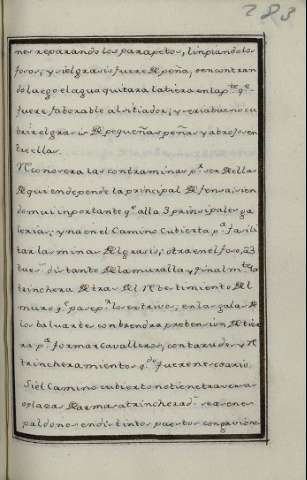 283
nes reparando los parapetos, limpiando los
fosos, y si el grasis fuere de peña, se encontran
do luego el agua quitara la tierra en la pte. qe.
fuere faborable al sitiador, y sera bueno cu
brir el grasis de pequeñas peñas y abrojos en
tre ellas.
No conocera las contraminas pr. ser de ellas
de quien depende la principal defensa, sien
do mui inportante qe. alla 3 principales ga
lerias, y na en el Camino Cubierta pa. fasili
tar las minas del grasis, otra en el foso, 23
tues. distante de la muralla y final mte. la
trinchera detras del Rebetimiento del
muro qe. pase pr. los estrivos, en la gala de
los baluartes conbendra pretensiun de tie
rra pa. formar cavalleros, contarudes y R
trincheramientos qdo. fuere nesesario.
Si el Camino cubierto no tiene traversas
o plaza de armas atrincherads. se a en es
paldones en distintos puestos con grasione